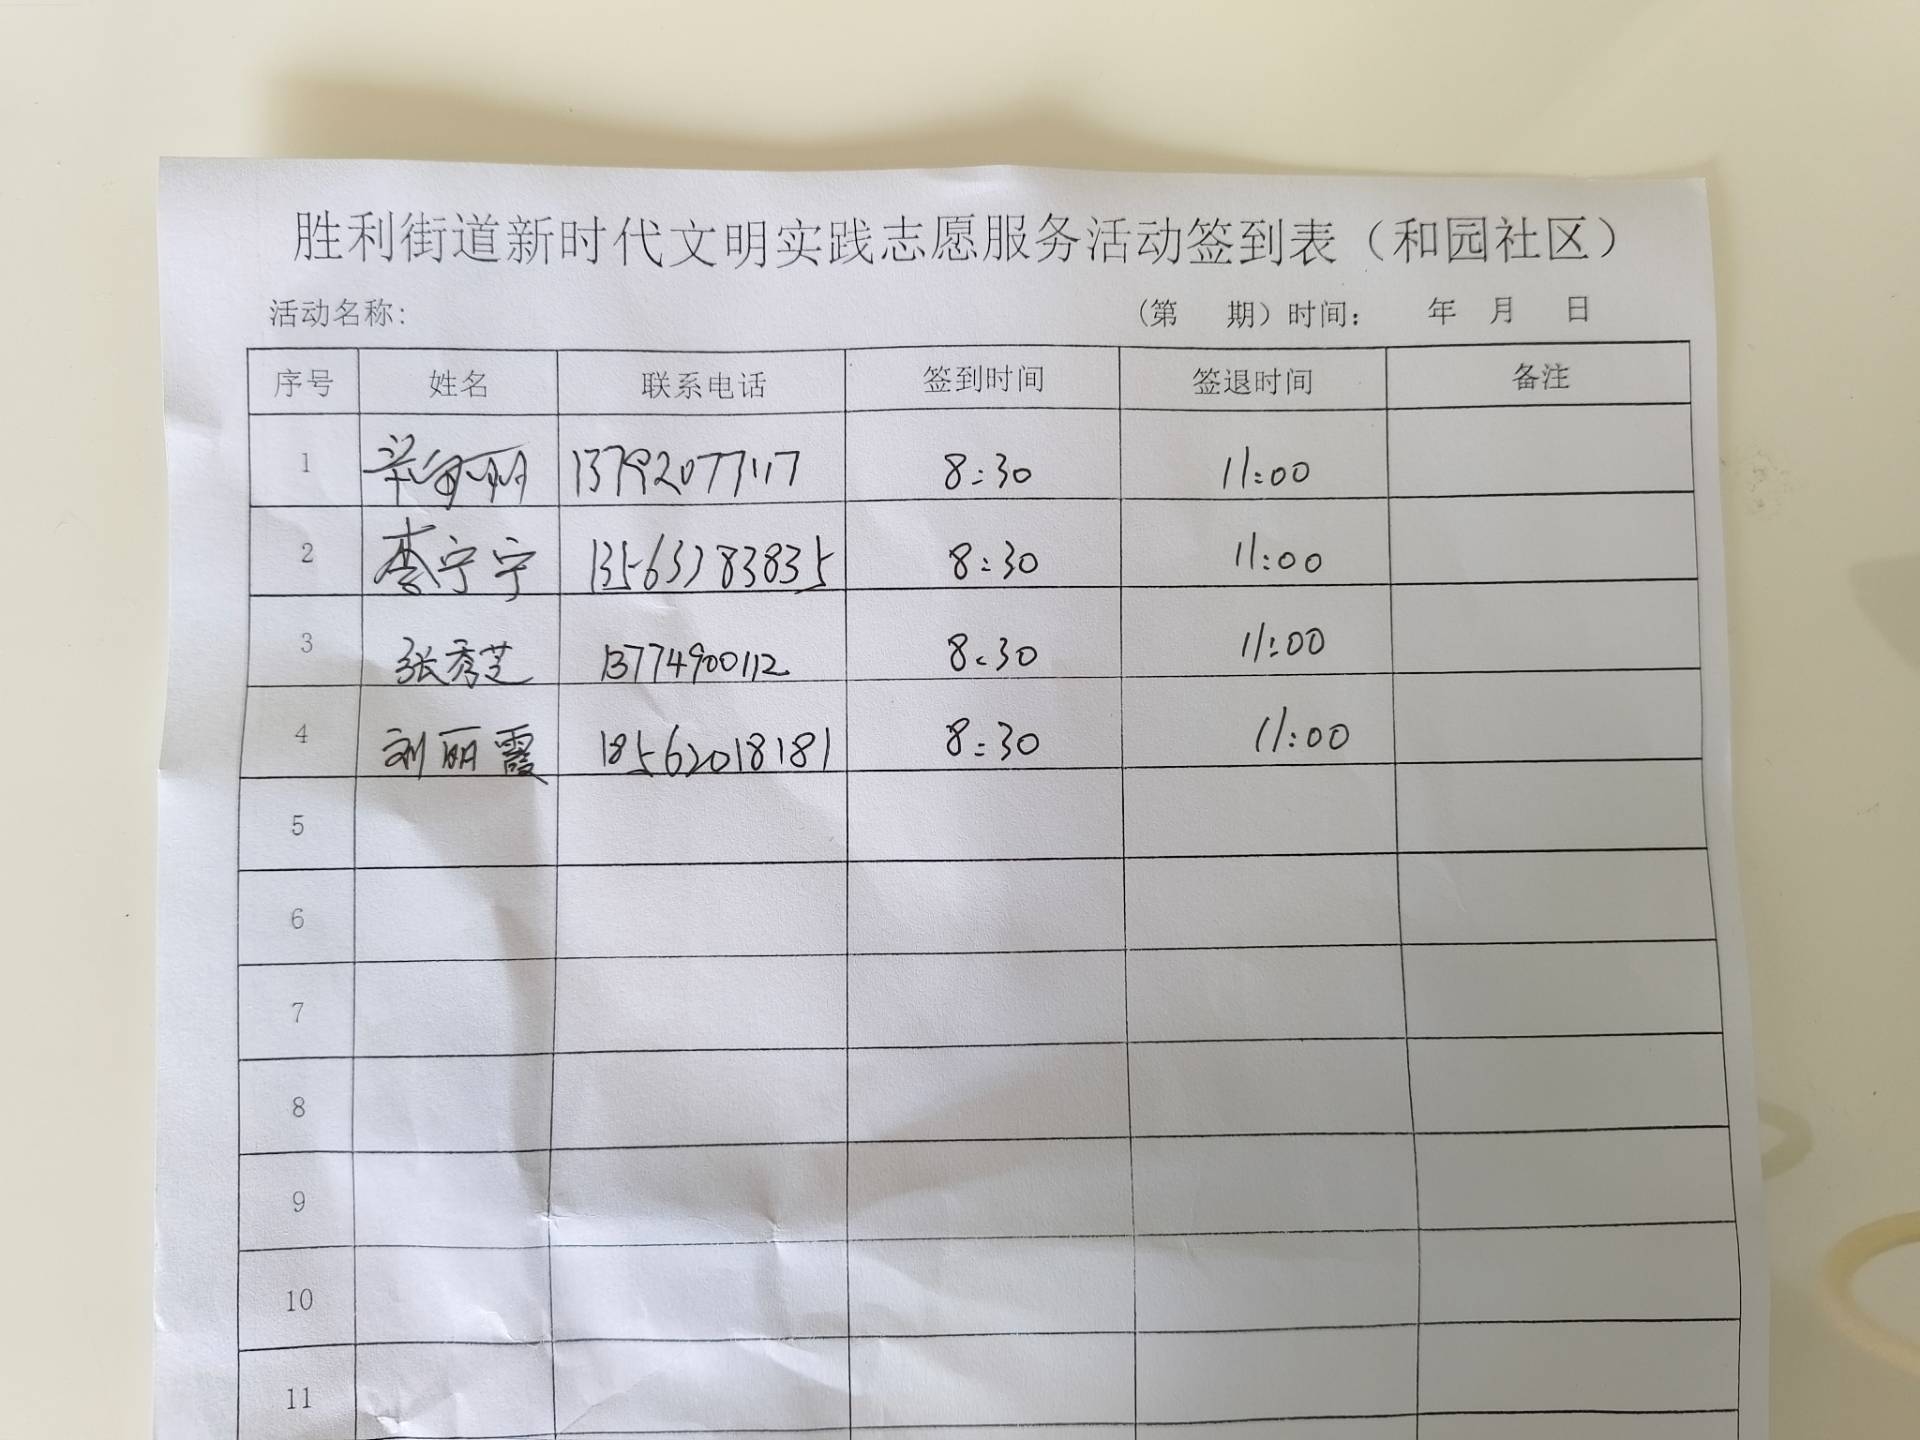 胜利街道新时代文明实践志愿服务活动签到表（和园社区）
活动名称: （第 期）时间: 年 月 日
序号 姓名 联系电话 签到时间 签退时间 备注
1 13792077117 8:30 11:00
2 李宁宁 13563783835 8:30 11:00
3 张秀芝 13774900112 8:30 11:00
4 刘丽霞 18562018181 8:30 11:00
5
6
7
8
9
10
11